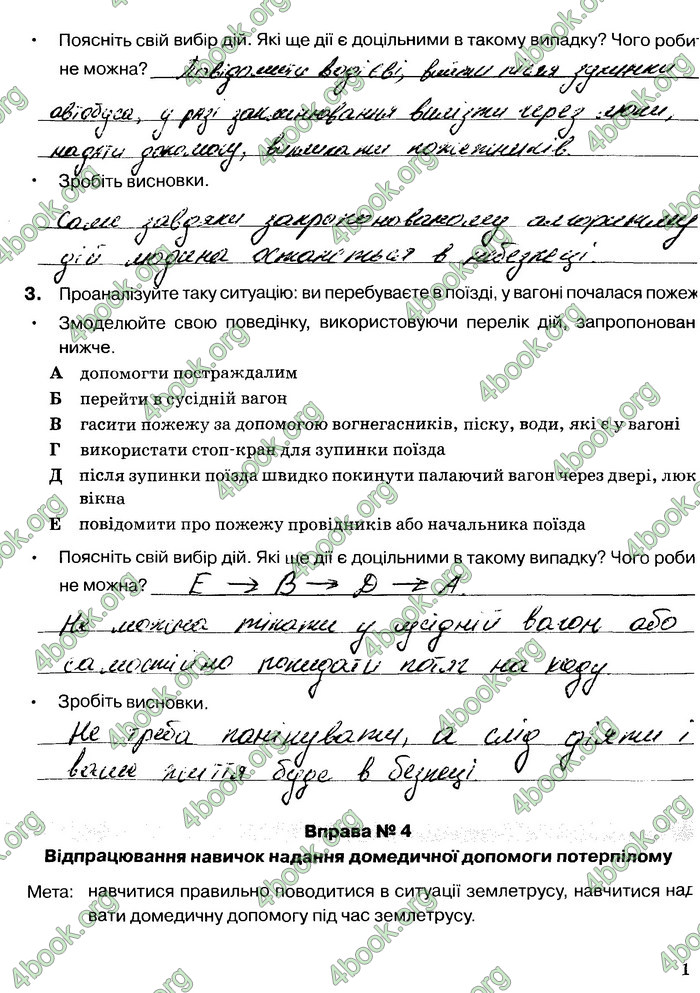 • Поясніть свій вибір дій. Які ще дії є доцільними в такому випадку? Чого робит
не можна? Повідомити водієві, вийти після зупинки
автобуса, у разі заклинювання вилізти через люки,
надати допомогу, викликати пожежників.
• Зробіть висновки.
Саме завдяки запропонованому алгоритму
дій людина останеться в небезпеці.
3. Проаналізуйте таку ситуацію: ви перебуваєте в поїзді, у вагоні почалася пожеж
• Змоделюйте свою поведінку, використовуючи перелік дій, запропонован
нижче.
А допомогти постраждалим
Б перейти в сусідній вагон
В гасити пожежу за допомогою вогнегасників, піску, води, які є у вагоні
Г використати стоп-кран для зупинки поїзда
Д після зупинки поїзда швидко покинути палаючий вагон через двері, люк
вікна
Е повідомити про пожежу провідників або начальника поїзда
• Поясніть свій вибір дій. Які ще дії є доцільними в такому випадку? Чого роби
не можна? Е → В → D → А.
Не можна тікати у сусідній вагон або
самостійно покидати потяг на ходу.
• Зробіть висновки.
Не треба панікувати, а слід діяти і
ваше життя буде в безпеці.
Вправа № 4
Відпрацювання навичок надання домедичної допомоги потерпілому
Мета: навчитися правильно поводитися в ситуації землетрусу, навчитися над
вати домедичну допомогу під час землетрусу.
1
4book.org